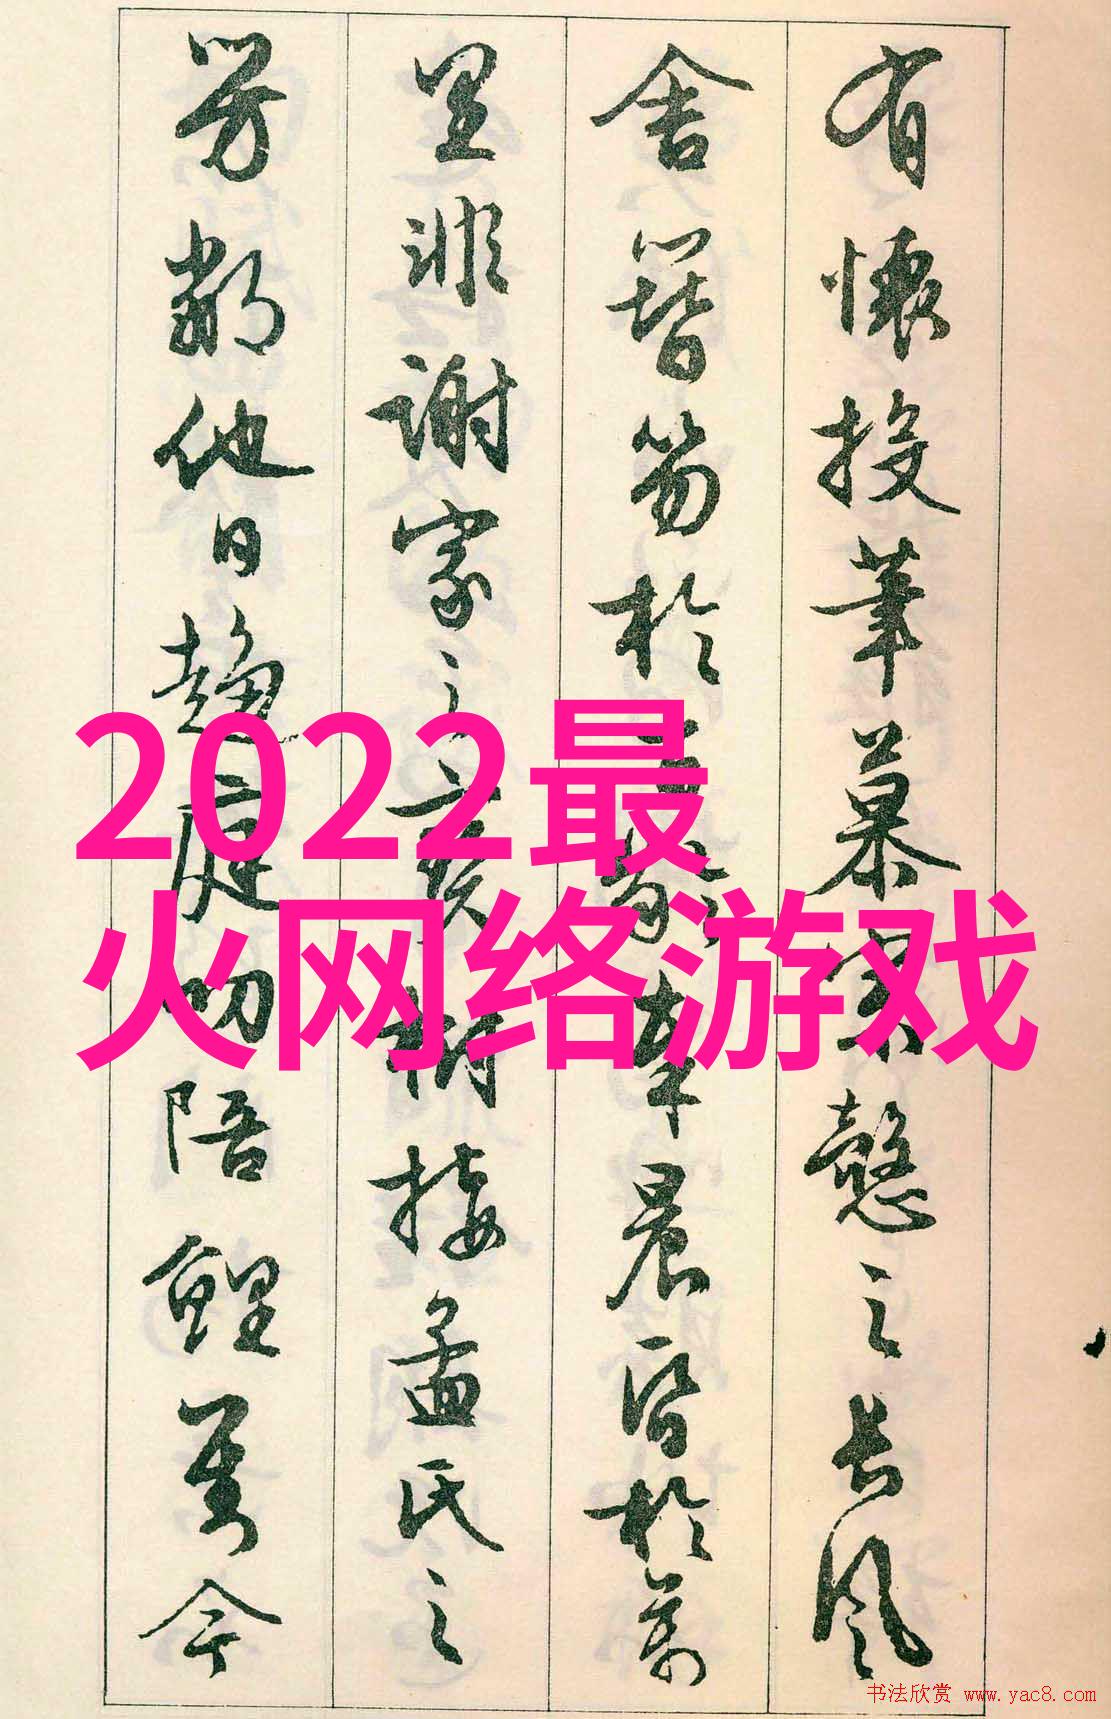 有懷投筆慕宗愨之長風
舍簪笏於百齡奉晨昏於萬
里非謝家之寶樹接孟氏之
芳鄰他日趨庭叨陪鯉對今
2022最
火网络游戏
书法欣赏 www.yac8.com